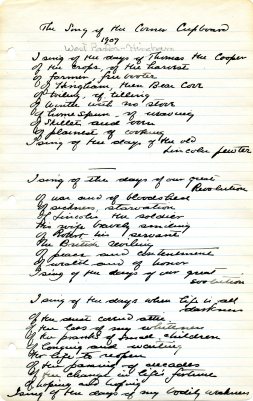 The Song of the Corner Cupboard
1927
West Parlor - Hingham
I sing of the days of Thomas the Cooper
Of the crops, of the harvest
Of farmer, free booter
Of Hingham, then Bear Cove
Of of tilling
Of winter with no store
Of homespun, of weaving
Of skillet and
Of plainest of cooking
I sing of the days of the old
Lincoln pewter
I sing of the days of our great
Revolution
Of war and of bloodshed
Of sickness, starvation
Of Lincoln, the soldier
His wife bravely smiling
Of his servant
The British
Of peace and contentment
Of wealth and of honor
I sing of the days of our great
evolution
I sing of the days when life is all
darkness
Of the dust corner attic
Of the loss of my whiteness
Of the pranks of small children
Of longing and waiting
For life to reopen
Of the passing of decades
Of the change in life's fortune
Of hoping and hoping
I sing of the days of my bodily weakness